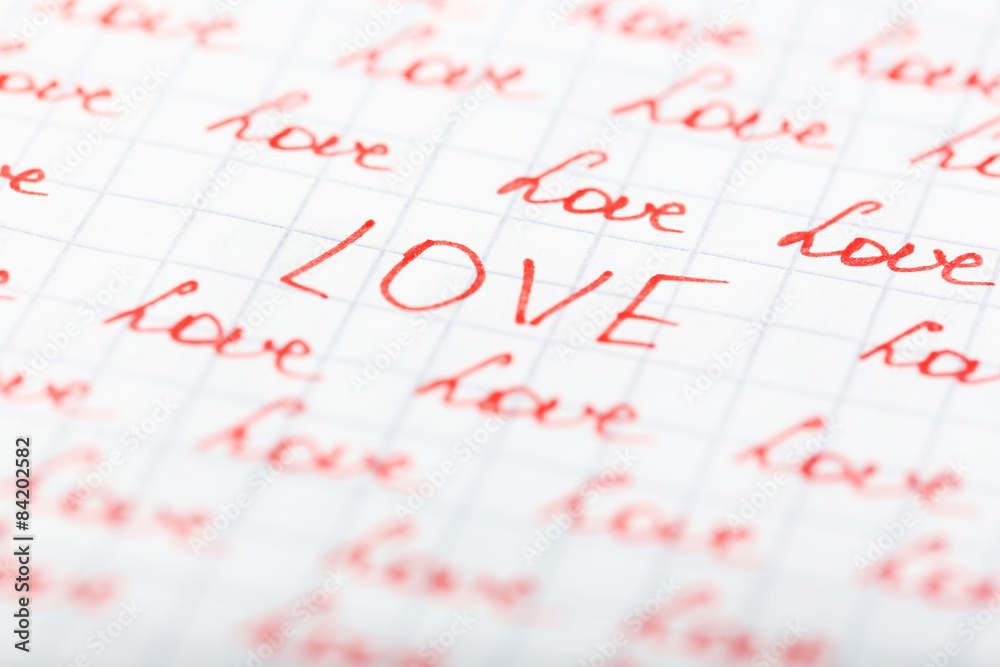 Love Love
Love Love
ove Love Love
ve Love Love
LOVE
Love Love
Love Love
Love Love
Love Love
Love Love
Adobe Stock | #84202582